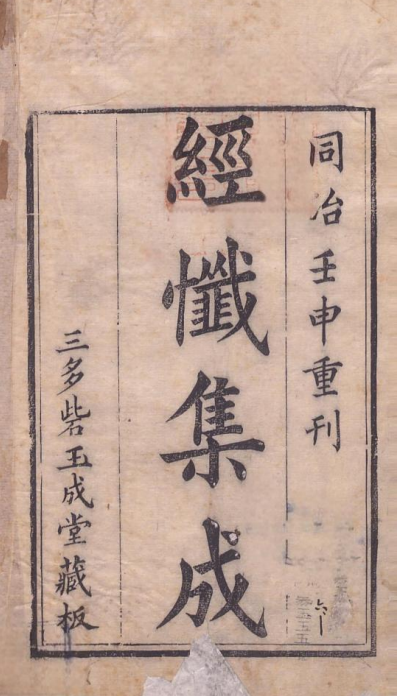 同治壬申重刊
經懺集成
三多砦玉成堂藏板